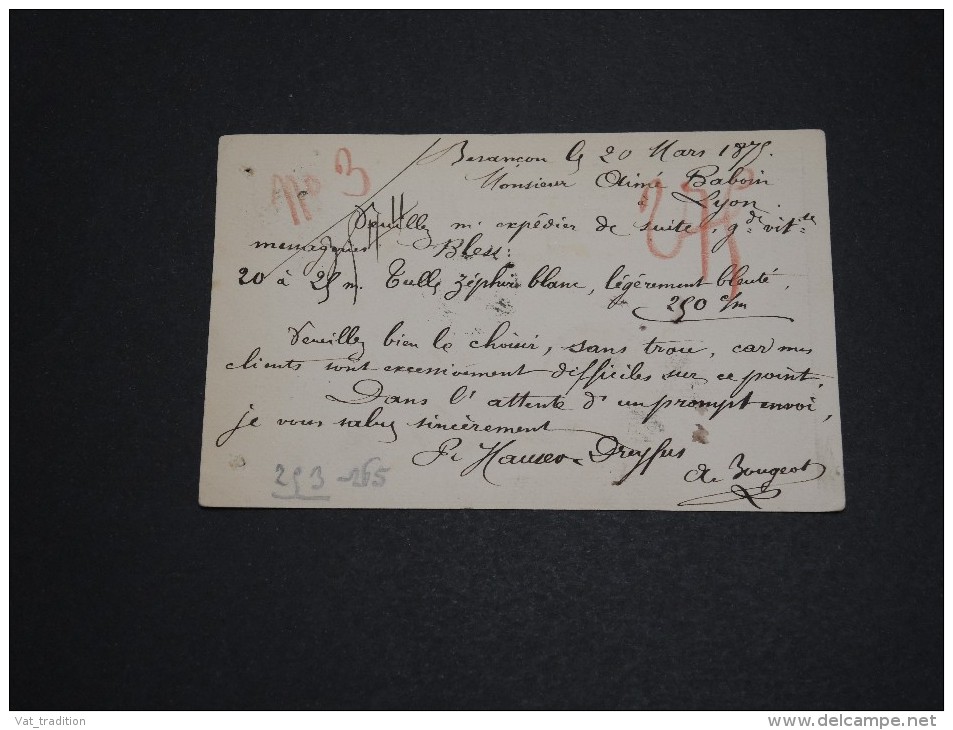 Besançon le 20 Mars 1875.
Monsieur Aimé Baboin
à Lyon.
App 3
Veuillez m' expédier de suite, gde vitte
messageries Blesc:
20 à 25 m. Tulle zéphir blanc, légèrement bleuté,
250 c/m
Veuillez bien le choisir, sans trou, car mes
clients sont excessivement difficiles sur ce point,
Dans l'attente d'un prompt envoi,
je vous salue sincèrement
Pr Hauser-Dreyfus
A. Bougeot
253 - 265
Vat_tradition
www.delcampe.net